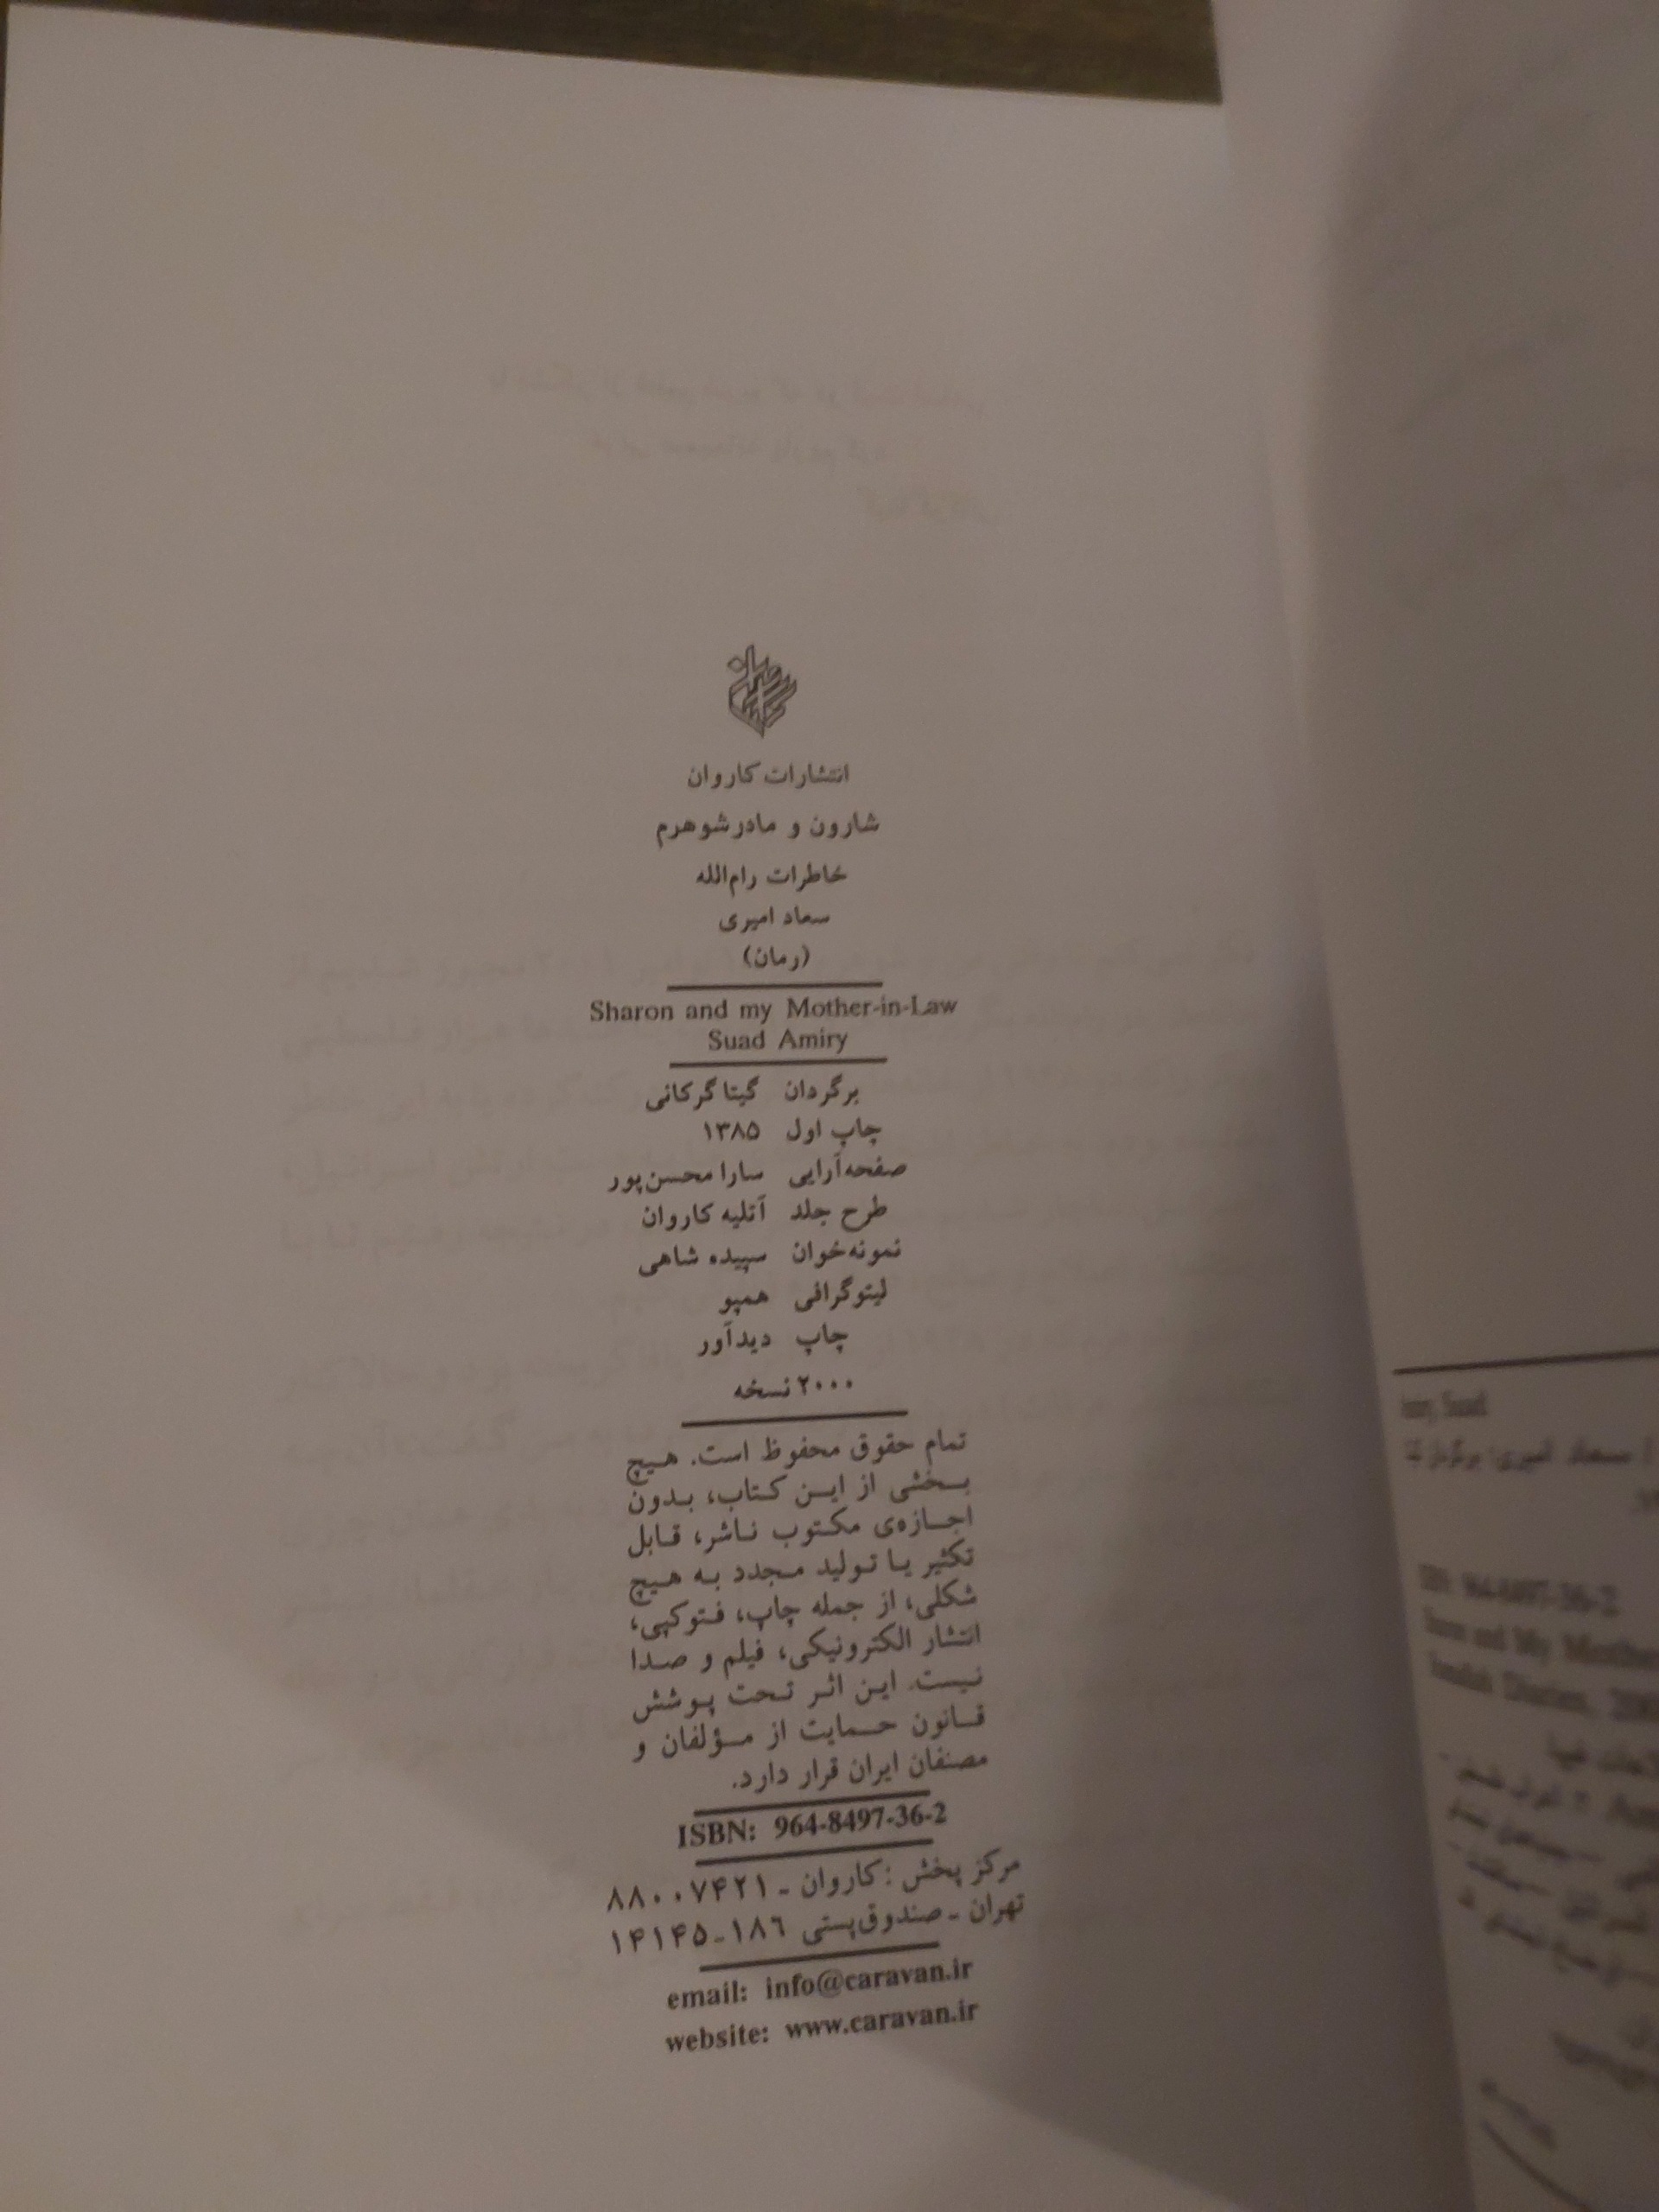 انتشارات کاروان
شارون و مادرشوهرم
خاطرات رام‌الله
سعاد امیری
(رمان)
Sharon and my Mother-in-Law
Suad Amiry
برگردان گیتا گرکانی
چاپ اول ۱۳۸۵
صفحه‌آرایی سارا محسن‌پور
طرح جلد آتلیه کاروان
نمونه‌خوان سپیده شاهی
لیتوگرافی همپو
چاپ دیدآور
۲۰۰۰ نسخه
تمام حقوق محفوظ است. هیچ
بخشی از این کتاب، بدون
اجازه‌ی مکتوب ناشر، قابل
تکثیر یا تولید مجدد به هیچ
شکلی، از جمله چاپ، فتوکپی،
انتشار الکترونیکی، فیلم و صدا
نیست. این اثر تحت پوشش
قانون حمایت از مؤلفان و
مصنفان ایران قرار دارد.
ISBN: 964-8497-36-2
مرکز پخش: کاروان - ۸۸۰۰۷۴۲۱
تهران - صندوق‌پستی ۱۸۶-۱۴۱۴۵
email: info@caravan.ir
website: www.caravan.ir
Suad
سعاد امیری؛ برگردان
964-8497-36-2
and My Mother
Diaries